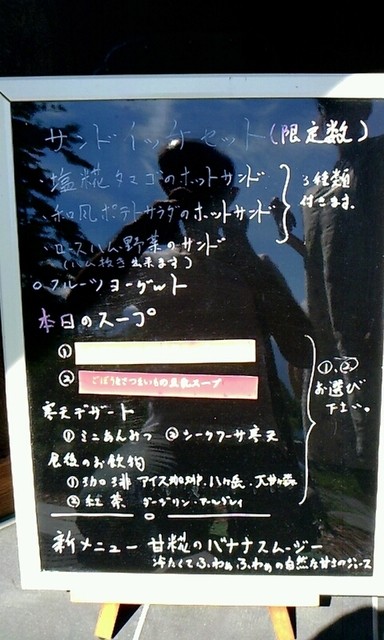 サンドイッチセット(限定数)
・塩糀タマゴのホットサンド
・和風ポテトサラダのホットサンド
3種類
付きます。
・ロースハム野菜のサンド
(ハム抜き出来ます)
○フルーツヨーグルト
本日のスープ
①
② ごぼうとさつまいもの豆乳スープ
①、②
お選び
下さい。
寒天デザート
①ミニあんみつ ②シークワーサ寒天
食後のお飲物
①珈琲 アイス珈琲、八ヶ岳、
②紅茶 ダージリン・アールグレイ
新メニュー 甘糀のバナナスムージー
冷たくてふわぁふわぁの自然な甘さのジュース